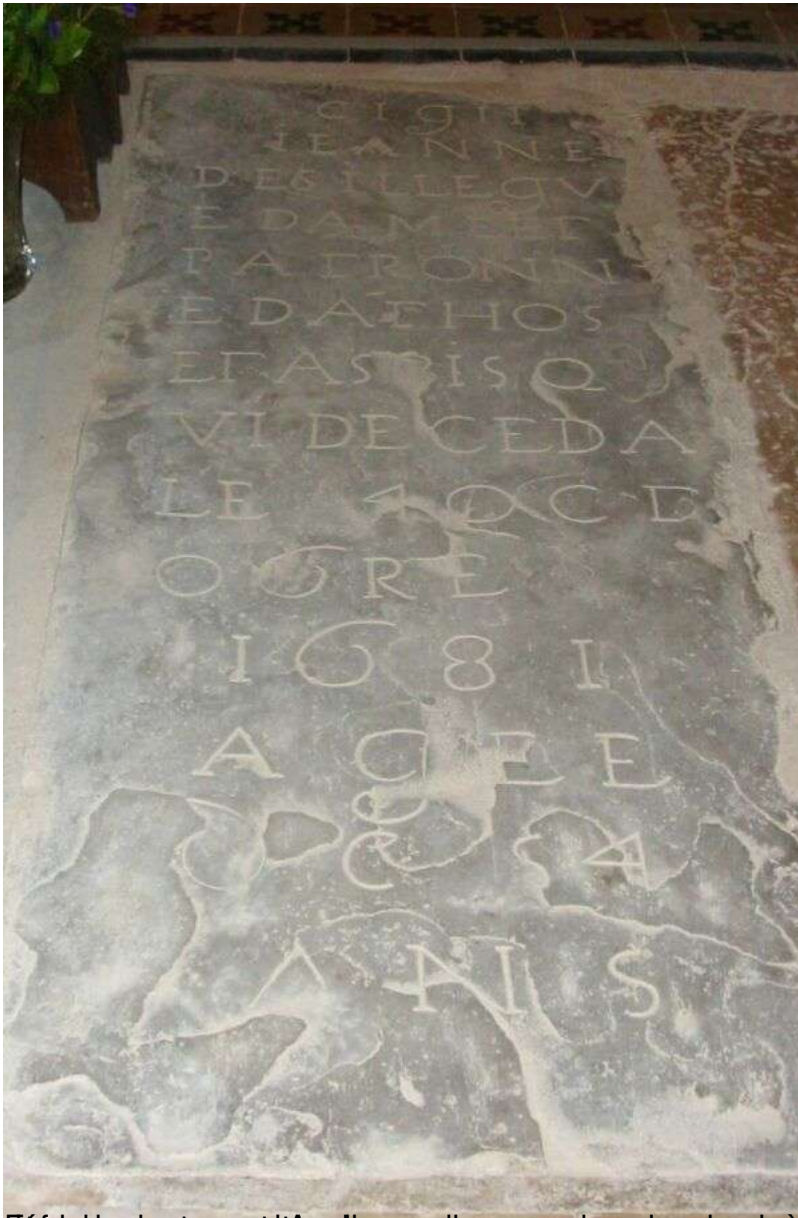 CI GIT
IEANNE
DE SILLEGV
E DAM ET
PATRONN
E DATHOS
ET ASPIS Q
VI DECEDA
LE 4 DC D
O6RE
1681
AGEE
54
ANS